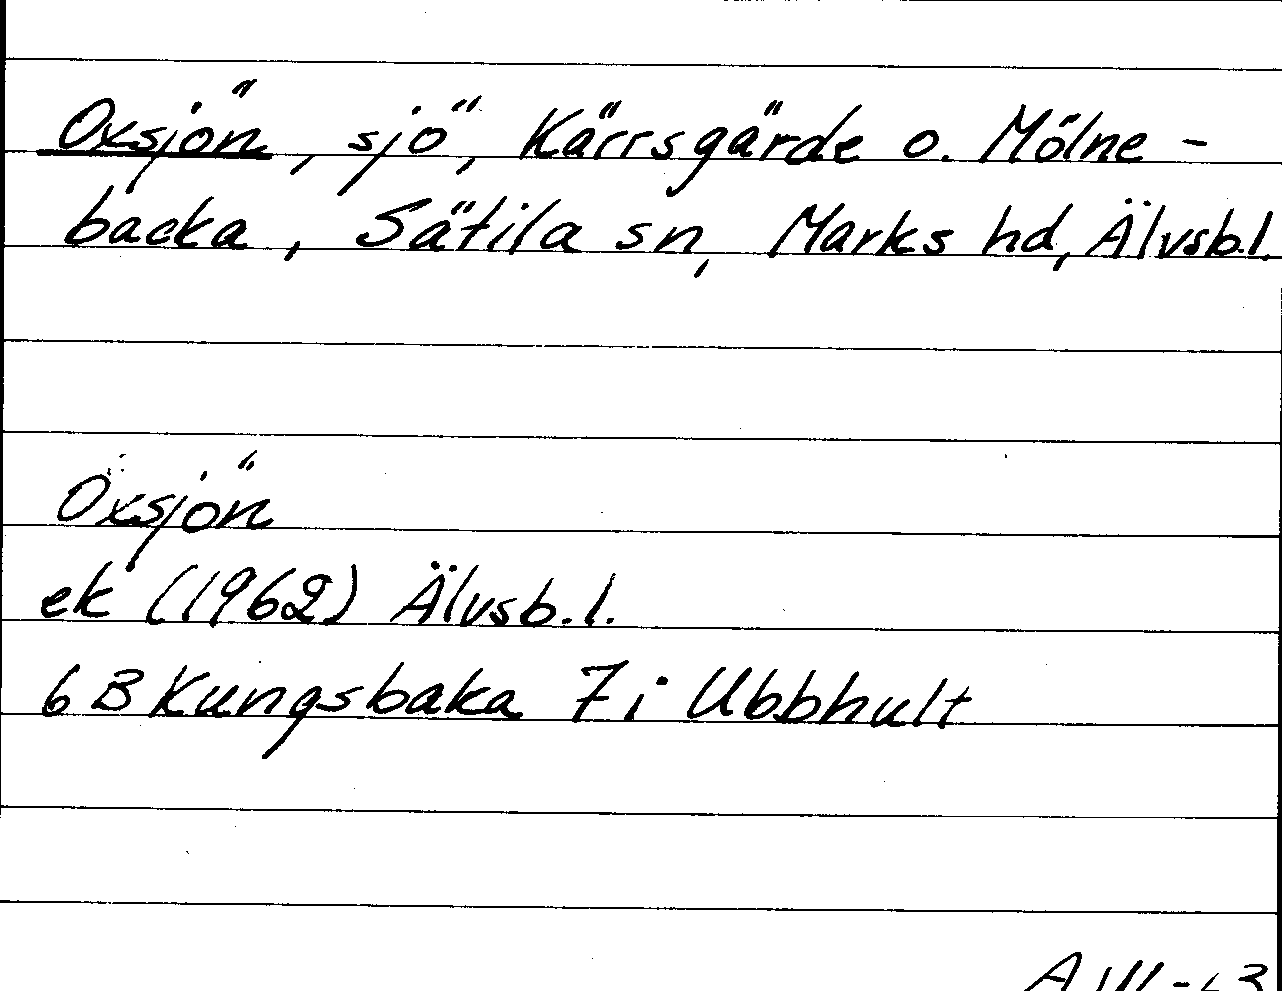 Oxsjön, sjö, Kärrsgärde o. Mölne-
backa, Sätila sn, Marks hd, Älvsb.l.
Oxsjön
ek (1962) Älvsb.l.
6 B Kungsbaka 7 i Ubbhult